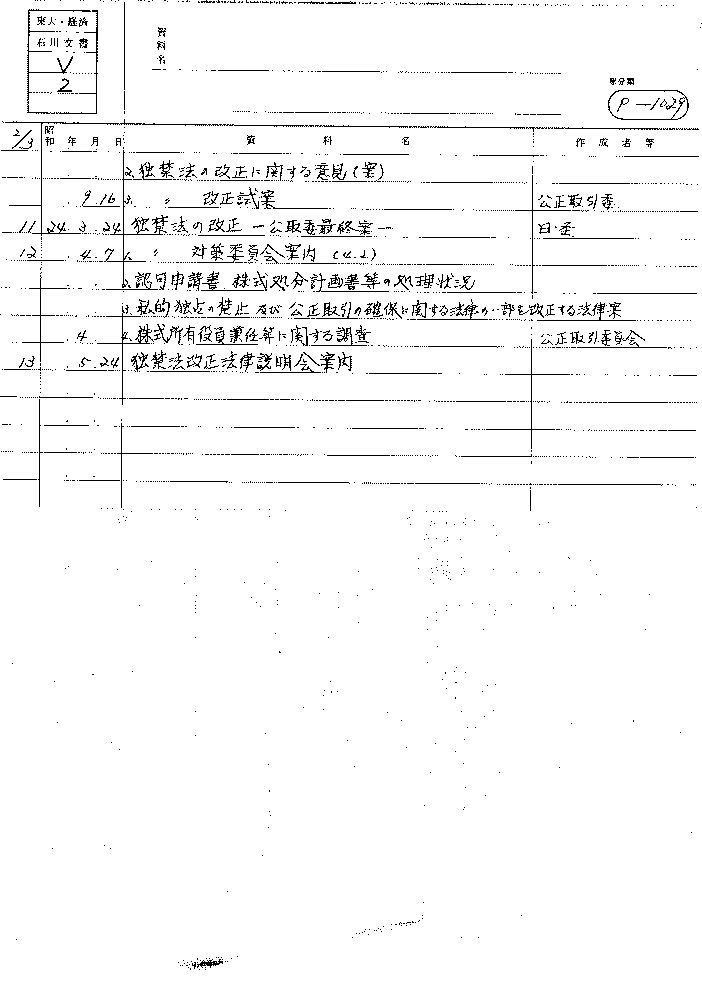 東大・経済
石川文書
V
2
資料名
原分類
P-1029
2/3
昭和 年 月 日 資料名 作成者等
2. 独禁法の改正に関する意見(案)
9.16 3. 〃 改正試案 公正取引委
11 24.3.24 独禁法の改正 ー公取委最終案ー 日・委
12 4.7 1. 〃 対策委員会案内 (4.2)
2. 認可申請書、株式処分計画書等の処理状況
3. 私的独占の禁止及び公正取引の確保に関する法律の一部を改正する法律案
4. 4. 株式所有役員兼任等に関する調査 公正取引委員会
13 5.24 独禁法改正法律説明会案内